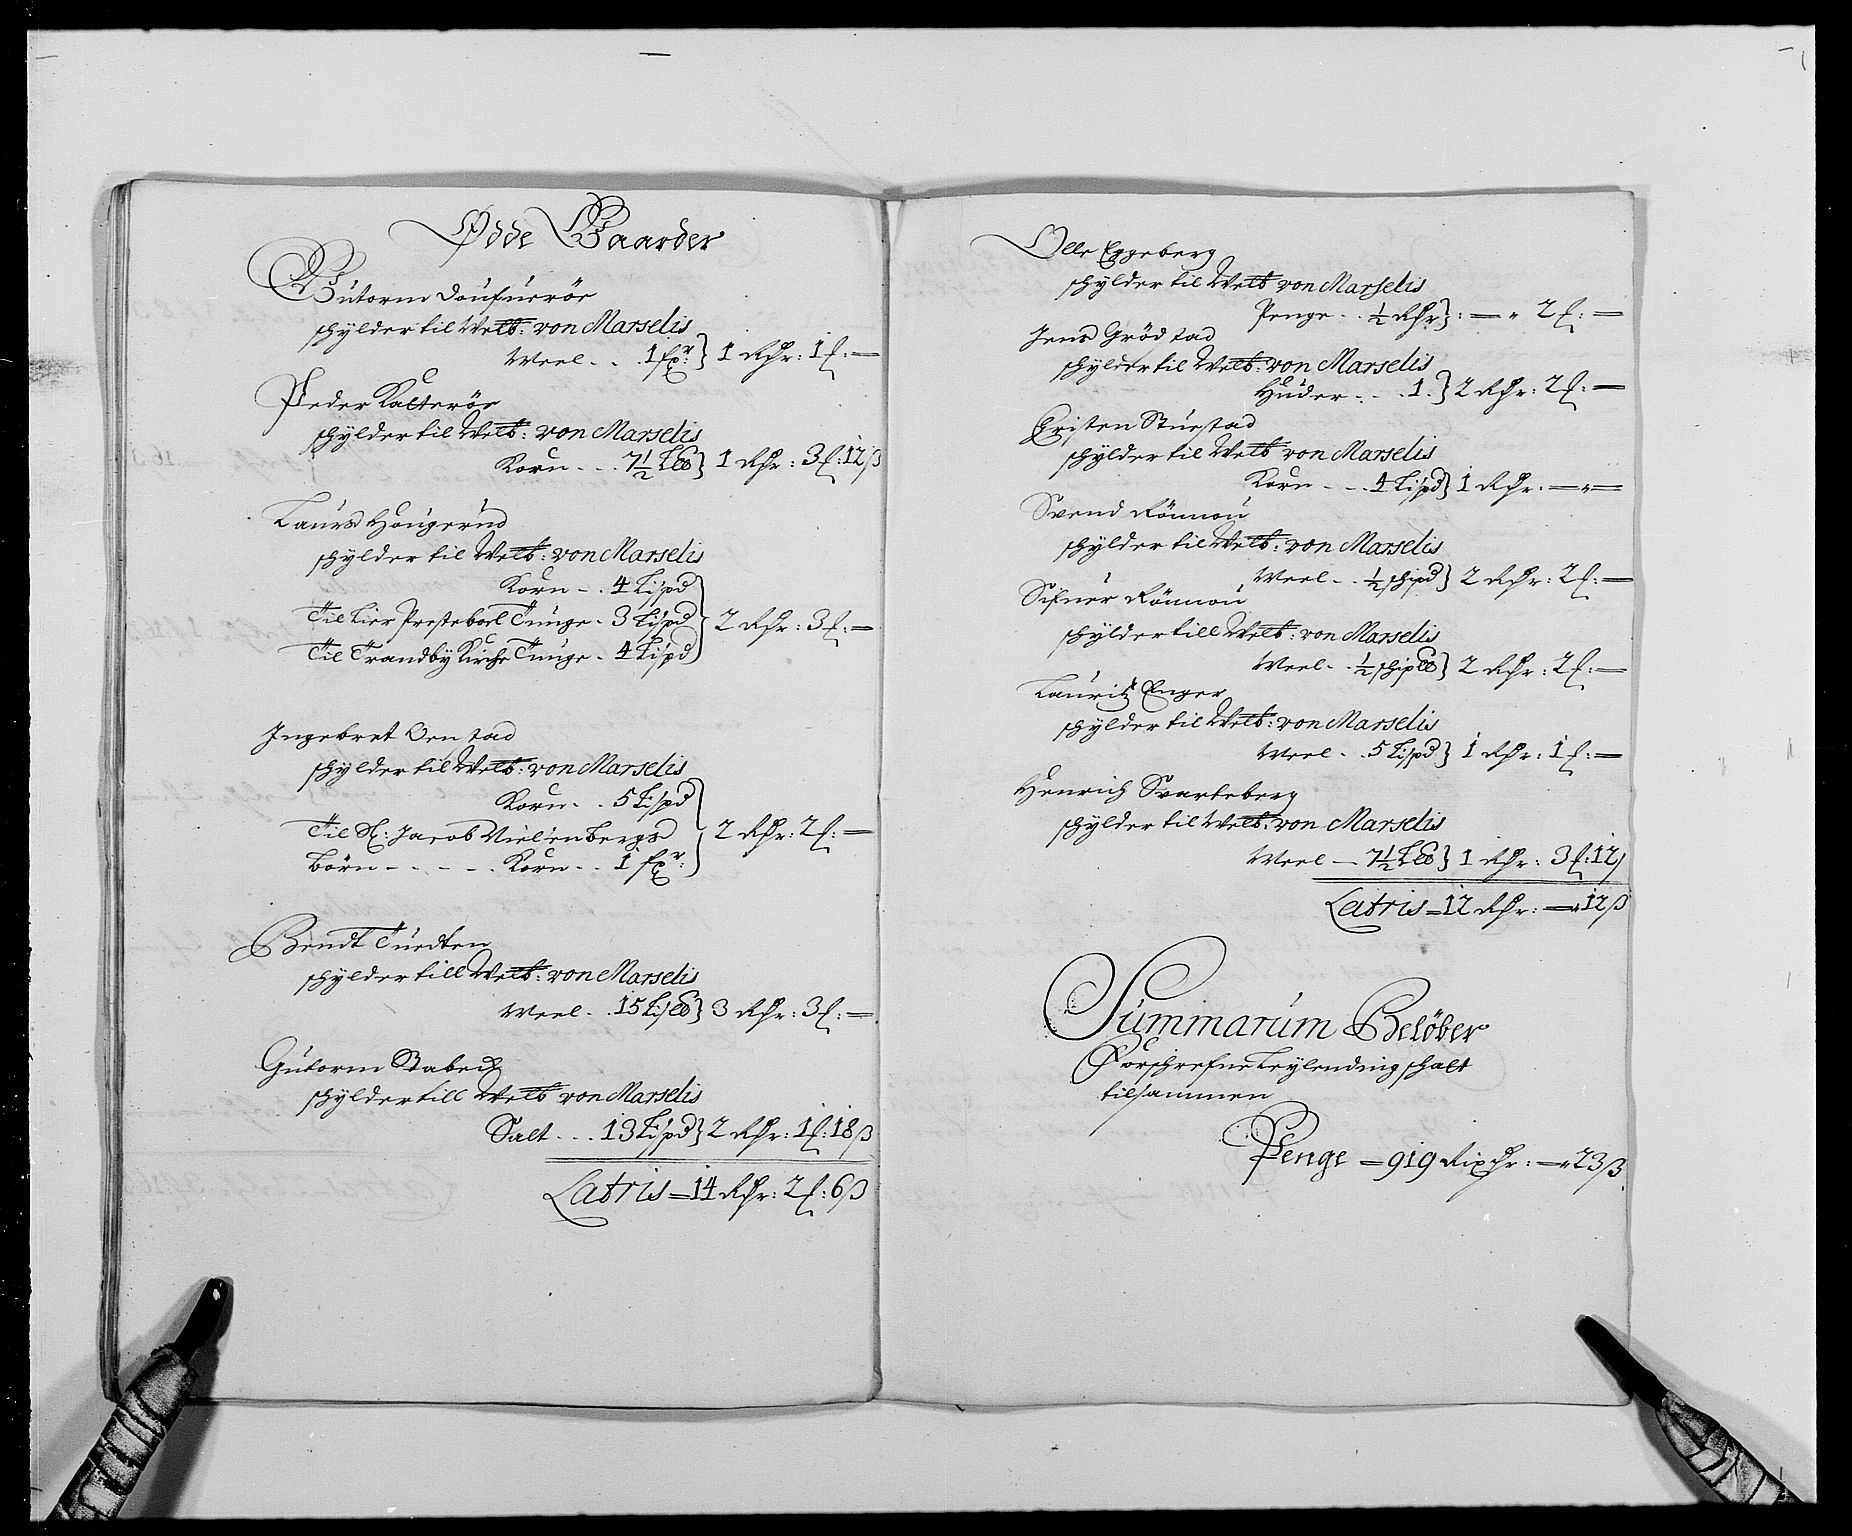 Øde Gaarder
Gutorm Doufuerøe
schylder til Welb: von Marselis
Meel - . . 1 fxr: } 1 Rdr: 1 ℓ: —
Peder Kalterøe
schylder til Welb: von Marselis
Korn - . . 7½ L℔ } 1 Rdr: 3 ℓ: 12 β
Laurs Hougerud
schylder til Welb: von Marselis
Korn - . . 4 Lispd
Til Lier Presteboel Tunge - 3 Lispd } 2 Rdr: 3 ℓ: —
Til Trandby Kirche Tunge - 4 Lispd
Ingebret Oenstad
schylder til Welb: von Marselis
Korn - . . 5 Lispd
Til Sl: Jacob Vielenbergs } 2 Rdr: 2 ℓ: —
børn - - - - - . Korn - . 1 fxr:
Bendt Tuedten
schylder till Welb: von Marselis
Meel - . 15 Lis℔ } 3 Rdr: 3 ℓ: —
Gutorm Stabech
schylder till Welb von Marselis
Salt . . . 13 Lispd } 2 Rdr: 1 ℓ: 18 β
Latris = 14 Rdr: 2 ℓ: 6 β
Olle Eggeberg
schylder til Welb von Marselis
Penge - . . ½ Rdr } : — " 2 ℓ: —
Jens Grødstad
schylder til Welb: von Marselis
Huder - . . . 1. } 2 Rdr: 2 ℓ: —
Cristen Stuestad
schylder til Welb von Marselis
Korn - - . 4 Lispd } 1 Rdr: — " —
Svend Rønnou
schylder til Welb: von Marselis
Meel - . . ½ schipd } 2 Rdr: 2 ℓ: —
Sifuer Rønnou
schylder till Welb: von Marselis
Meel - . . ½ schip℔ } 2 Rdr: 2 ℓ: —
Lauritz Enger
schylder til Welb: von Marselis
Meel - . 5 Lispd } 1 Rdr: 1 ℓ: —
Henrich Svarteberg
schylder til Welb: von Marselis
Meel — 7½ L℔ } 1 Rdr: 3 ℓ: 12 β
Latris = 12 Rdr: — " 12 β
Summarum Beløber
Forschrefne Leylending schatt
tilsammen
Penge = 919 Rixdr: — " 23 β